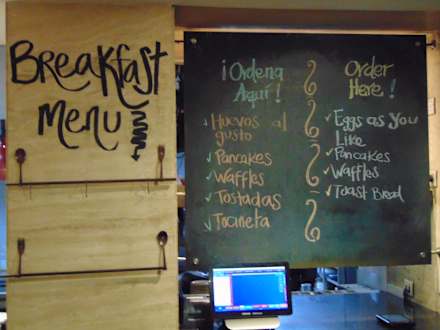 Breakfast
Menu
¡Ordena
Aquí!
Huevos al
gusto
Pancakes
Waffles
Tostadas
Tocineta
Order
Here!
Eggs as You
Like
Pancakes
Waffles
Toast Bread